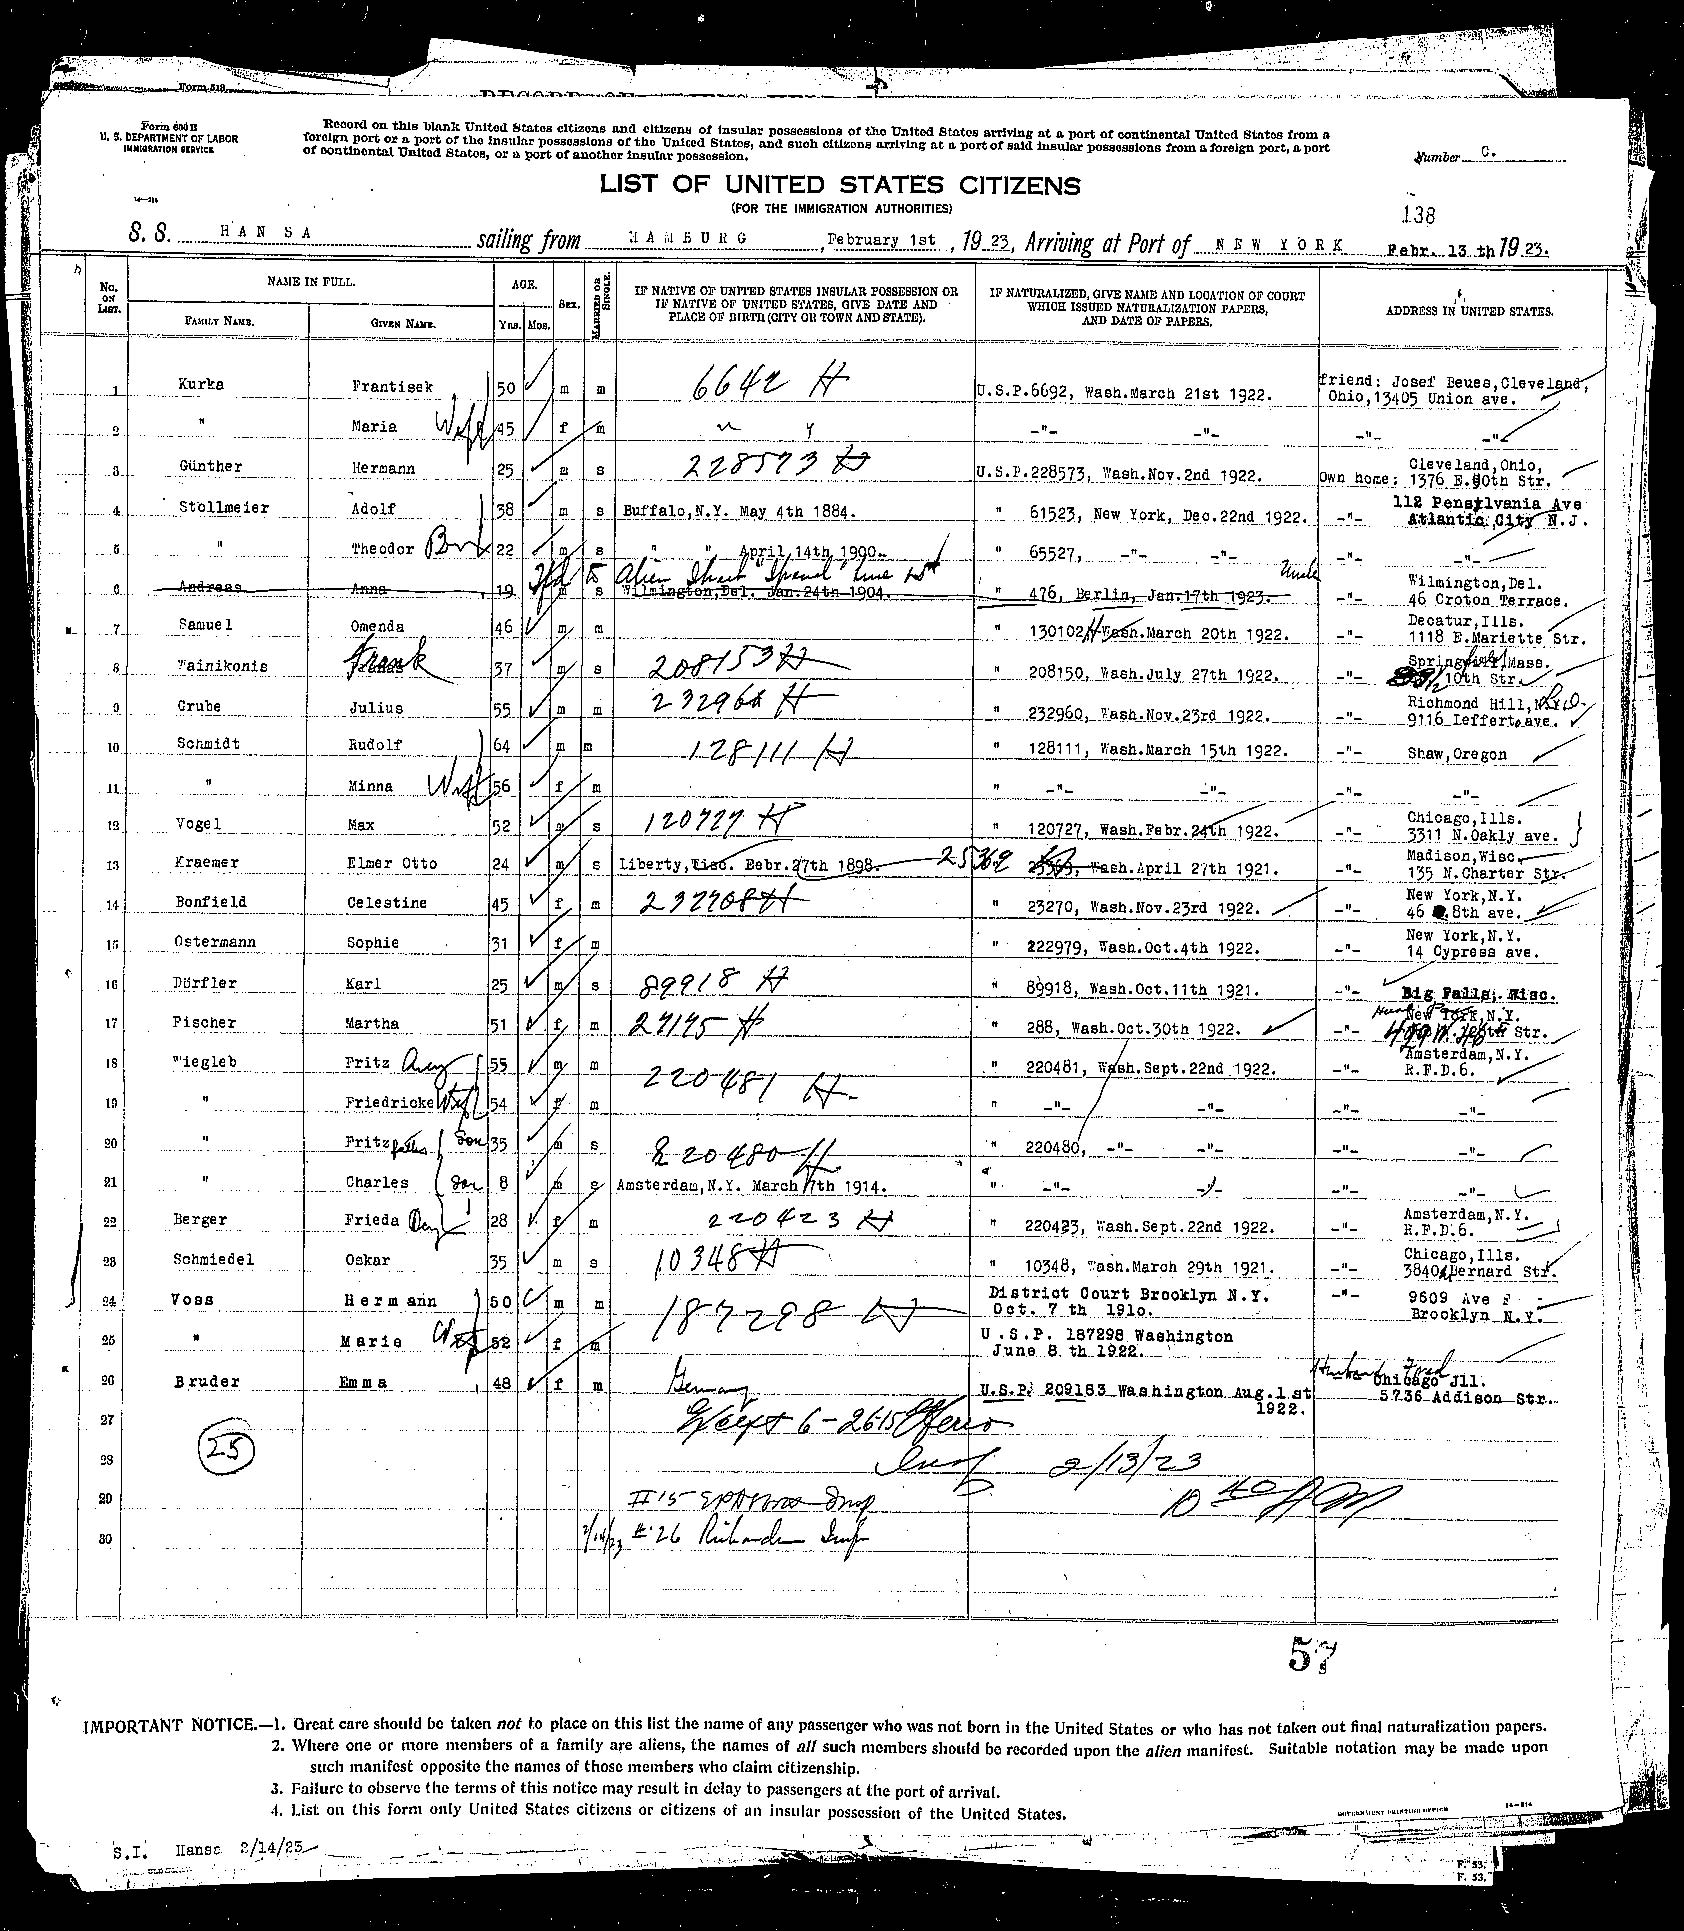 Form 519
Form 630 B
U. S. DEPARTMENT OF LABOR
IMMIGRATION SERVICE
Record on this blank United States citizens and citizens of insular possessions of the United States arriving at a port of continental United States from a
foreign port or a port of the insular possessions of the United States, and such citizens arriving at a port of said insular possessions from a foreign port, a port
of continental United States, or a port of another insular possession.
Number C.
LIST OF UNITED STATES CITIZENS
(FOR THE IMMIGRATION AUTHORITIES)
138
S. S. HANSA sailing from HAMBURG, February 1st, 1923, Arriving at Port of NEW YORK Febr. 13 th 1923.
No. ON LIST. NAME IN FULL. FAMILY NAME. GIVEN NAME. AGE. Yrs. Mos. SEX. MARRIED OR SINGLE.
IF NATIVE OF UNITED STATES INSULAR POSSESSION OR
IF NATIVE OF UNITED STATES, GIVE DATE AND
PLACE OF BIRTH (CITY OR TOWN AND STATE).
IF NATURALIZED, GIVE NAME AND LOCATION OF COURT
WHICH ISSUED NATURALIZATION PAPERS,
AND DATE OF PAPERS.
ADDRESS IN UNITED STATES.
1 Kurka Frantisek 50 m m 6642 H U.S.P.6692, Wash.March 21st 1922. friend: Josef Beues, Cleveland,
Ohio,13405 Union ave.
2 " Maria Wife 45 f m -"- -"- -"- -"-
3 Günther Hermann 25 m s 228573 H U.S.P.228573, Wash.Nov.2nd 1922. Own home: Cleveland,Ohio,
1376 E.90th Str.
4 Stollmeier Adolf 38 m s Buffalo,N.Y. May 4th 1884. " 61523, New York, Dec.22nd 1922. -"- 112 Pensylvania Ave
Atlantic City N.J.
5 " Theodor Bro 22 m s " " April 14th 1900. " 65527, -"- -"- -"- -"-
6 Andreas Anna 19 m s Wilmington,Del. Jan.24th 1904. " 476, Berlin, Jan.17th 1923. Uncle -"- Wilmington,Del.
46 Croton Terrace.
7 Samuel Omenda 46 m m " 130102 H Wash.March 20th 1922. -"- Decatur,Ills.
1118 E.Mariette Str.
8 Wainikonis Frank 37 m s 208153 H " 208150, Wash.July 27th 1922. -"- Springfield,Mass.
10th Str.
9 Grube Julius 55 m m " 232960, Wash.Nov.23rd 1922. -"- Richmond Hill,
9116 Leffert.ave.
10 Schmidt Rudolf 64 m m 128111 H " 128111, Wash.March 15th 1922. -"- Shaw,Oregon
11 " Minna Wife 56 f m " -"- -"- -"- -"-
12 Vogel Max 52 m s 120727 H " 120727, Wash.Febr.24th 1922. -"- Chicago,Ills.
3311 N.Oakly ave.
13 Kraemer Elmer Otto 24 m s Liberty,Wisc. Febr.27th 1898. 25362 Wash.April 27th 1921. -"- Madison,Wisc.
135 N.Charter Str.
14 Bonfield Celestine 45 f m 232708 H " 23270, Wash.Nov.23rd 1922. -"- New York,N.Y.
46 8th ave.
15 Ostermann Sophie 31 f m " 222979, Wash.Oct.4th 1922. -"- New York,N.Y.
14 Cypress ave.
16 Dörfler Karl 25 m s 89918 H " 89918, Wash.Oct.11th 1921. -"- Big Falls, Wisc.
17 Fischer Martha 51 f m 27175 H " 288, Wash.Oct.30th 1922. -"- New York,N.Y.
Str.
18 Wiegleb Fritz 55 m m 220481 H " 220481, Wash.Sept.22nd 1922. -"- Amsterdam,N.Y.
R.F.D.6.
19 " Friedricke Wife 54 f m " -"- -"- -"- -"-
20 " Fritz father Son 35 m s 220480 H " 220480, -"- -"- -"- -"-
21 " Charles Son 8 m s Amsterdam,N.Y. March 17th 1914. " -"- -"- -"- -"-
22 Berger Frieda 28 f m 220423 H " 220423, Wash.Sept.22nd 1922. -"- Amsterdam,N.Y.
R.F.D.6.
23 Schmiedel Oskar 35 m s 10348 H " 10348, Wash.March 29th 1921. -"- Chicago,Ills.
3840 Bernard Str.
24 Voss Hermann 50 m m 187298 H District Court Brooklyn N.Y.
Oct. 7 th 1910. -"- 9609 Ave F
Brooklyn N.Y.
25 " Marie Wife 52 f m U.S.P. 187298 Washington
June 8 th 1922.
26 Bruder Emma 48 f m Germany U.S.P. 209183 Washington Aug.1.st
1922. Husband Fred
Chicago Jll.
5736 Addison Str.
27 Except 6-26-15
28 25 Insp 2/13/23
29 #15 Insp 10 40 AM
30 2/14/23 #26 Richards Insp
57
IMPORTANT NOTICE.—1. Great care should be taken not to place on this list the name of any passenger who was not born in the United States or who has not taken out final naturalization papers.
2. Where one or more members of a family are aliens, the names of all such members should be recorded upon the alien manifest. Suitable notation may be made upon
such manifest opposite the names of those members who claim citizenship.
3. Failure to observe the terms of this notice may result in delay to passengers at the port of arrival.
4. List on this form only United States citizens or citizens of an insular possession of the United States.
GOVERNMENT PRINTING OFFICE 14—214
S.I. Hansa 2/14/23
F. 53.
F. 53.